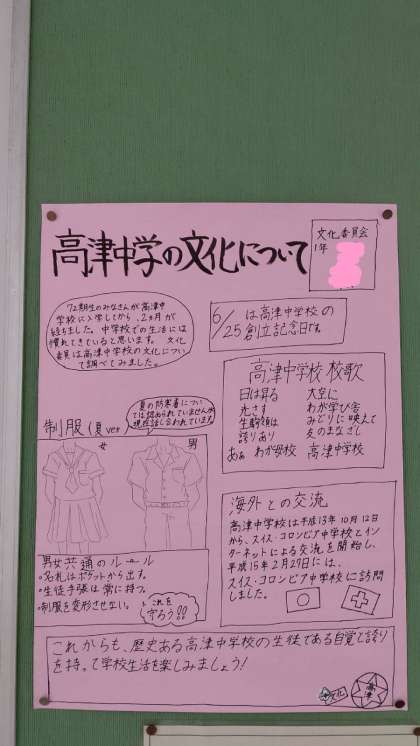 高津中学の文化について
文化委員会
1年
72期生のみなさんが高津中
学校に入学してから、2ヵ月が
経ちました。中学校での生活には
慣れてきていると思います。文化
委員は高津中学校の文化につい
て調べてみました。
6/25は高津中学校の
創立記念日です。
高津中学校 校歌
日は昇る 大空に
光さす わが学び舎
生駒嶺は みどりに映えて
誇りあり 友のまなざし
あぁ わが母校 高津中学校
制服(夏ver)
夏の防寒着につい
ては認められていませんが
現在話し合われています。
女 男
海外との交流
高津中学校は平成13年10月12日
から、スイス・コロンビア中学校とイン
ターネットによる交流を開始し、
平成15年2月27日には、
スイス・コロンビア中学校に訪問
しました。
男女共通のルール
・名札はポケットから出す。
・生徒手帳は常に持つ。
・制服を変形させない。
これを
守ろう!!
これからも、歴史ある高津中学校の生徒である自覚と誇り
を持って学校生活を楽しみましょう!
文化
高津